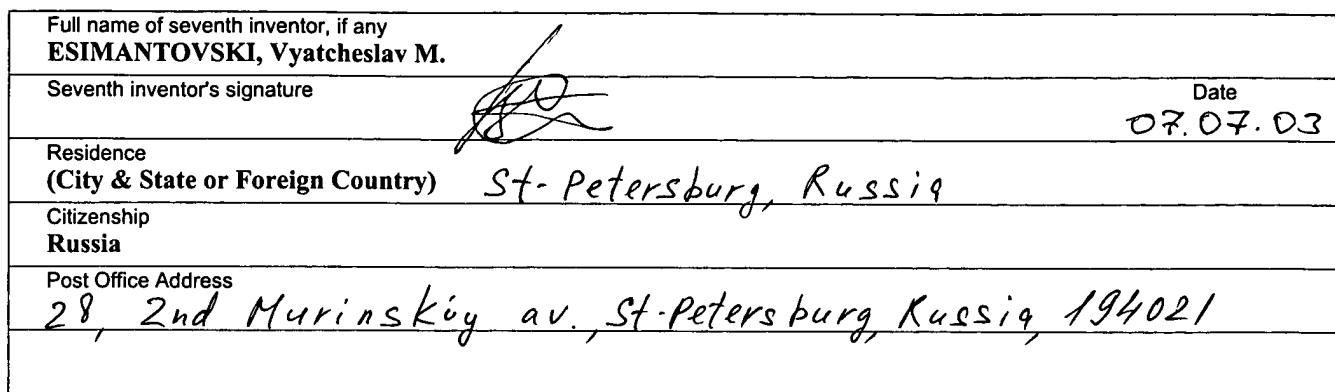 Full name of seventh inventor, if any
ESIMANTOVSKI, Vyatcheslav M.
Seventh inventor's signature
Date
07.07.03
Residence
(City & State or Foreign Country) St-Petersburg, Russia
Citizenship
Russia
Post Office Address
28, 2nd Murinskiy av., St-Petersburg, Russia, 194021